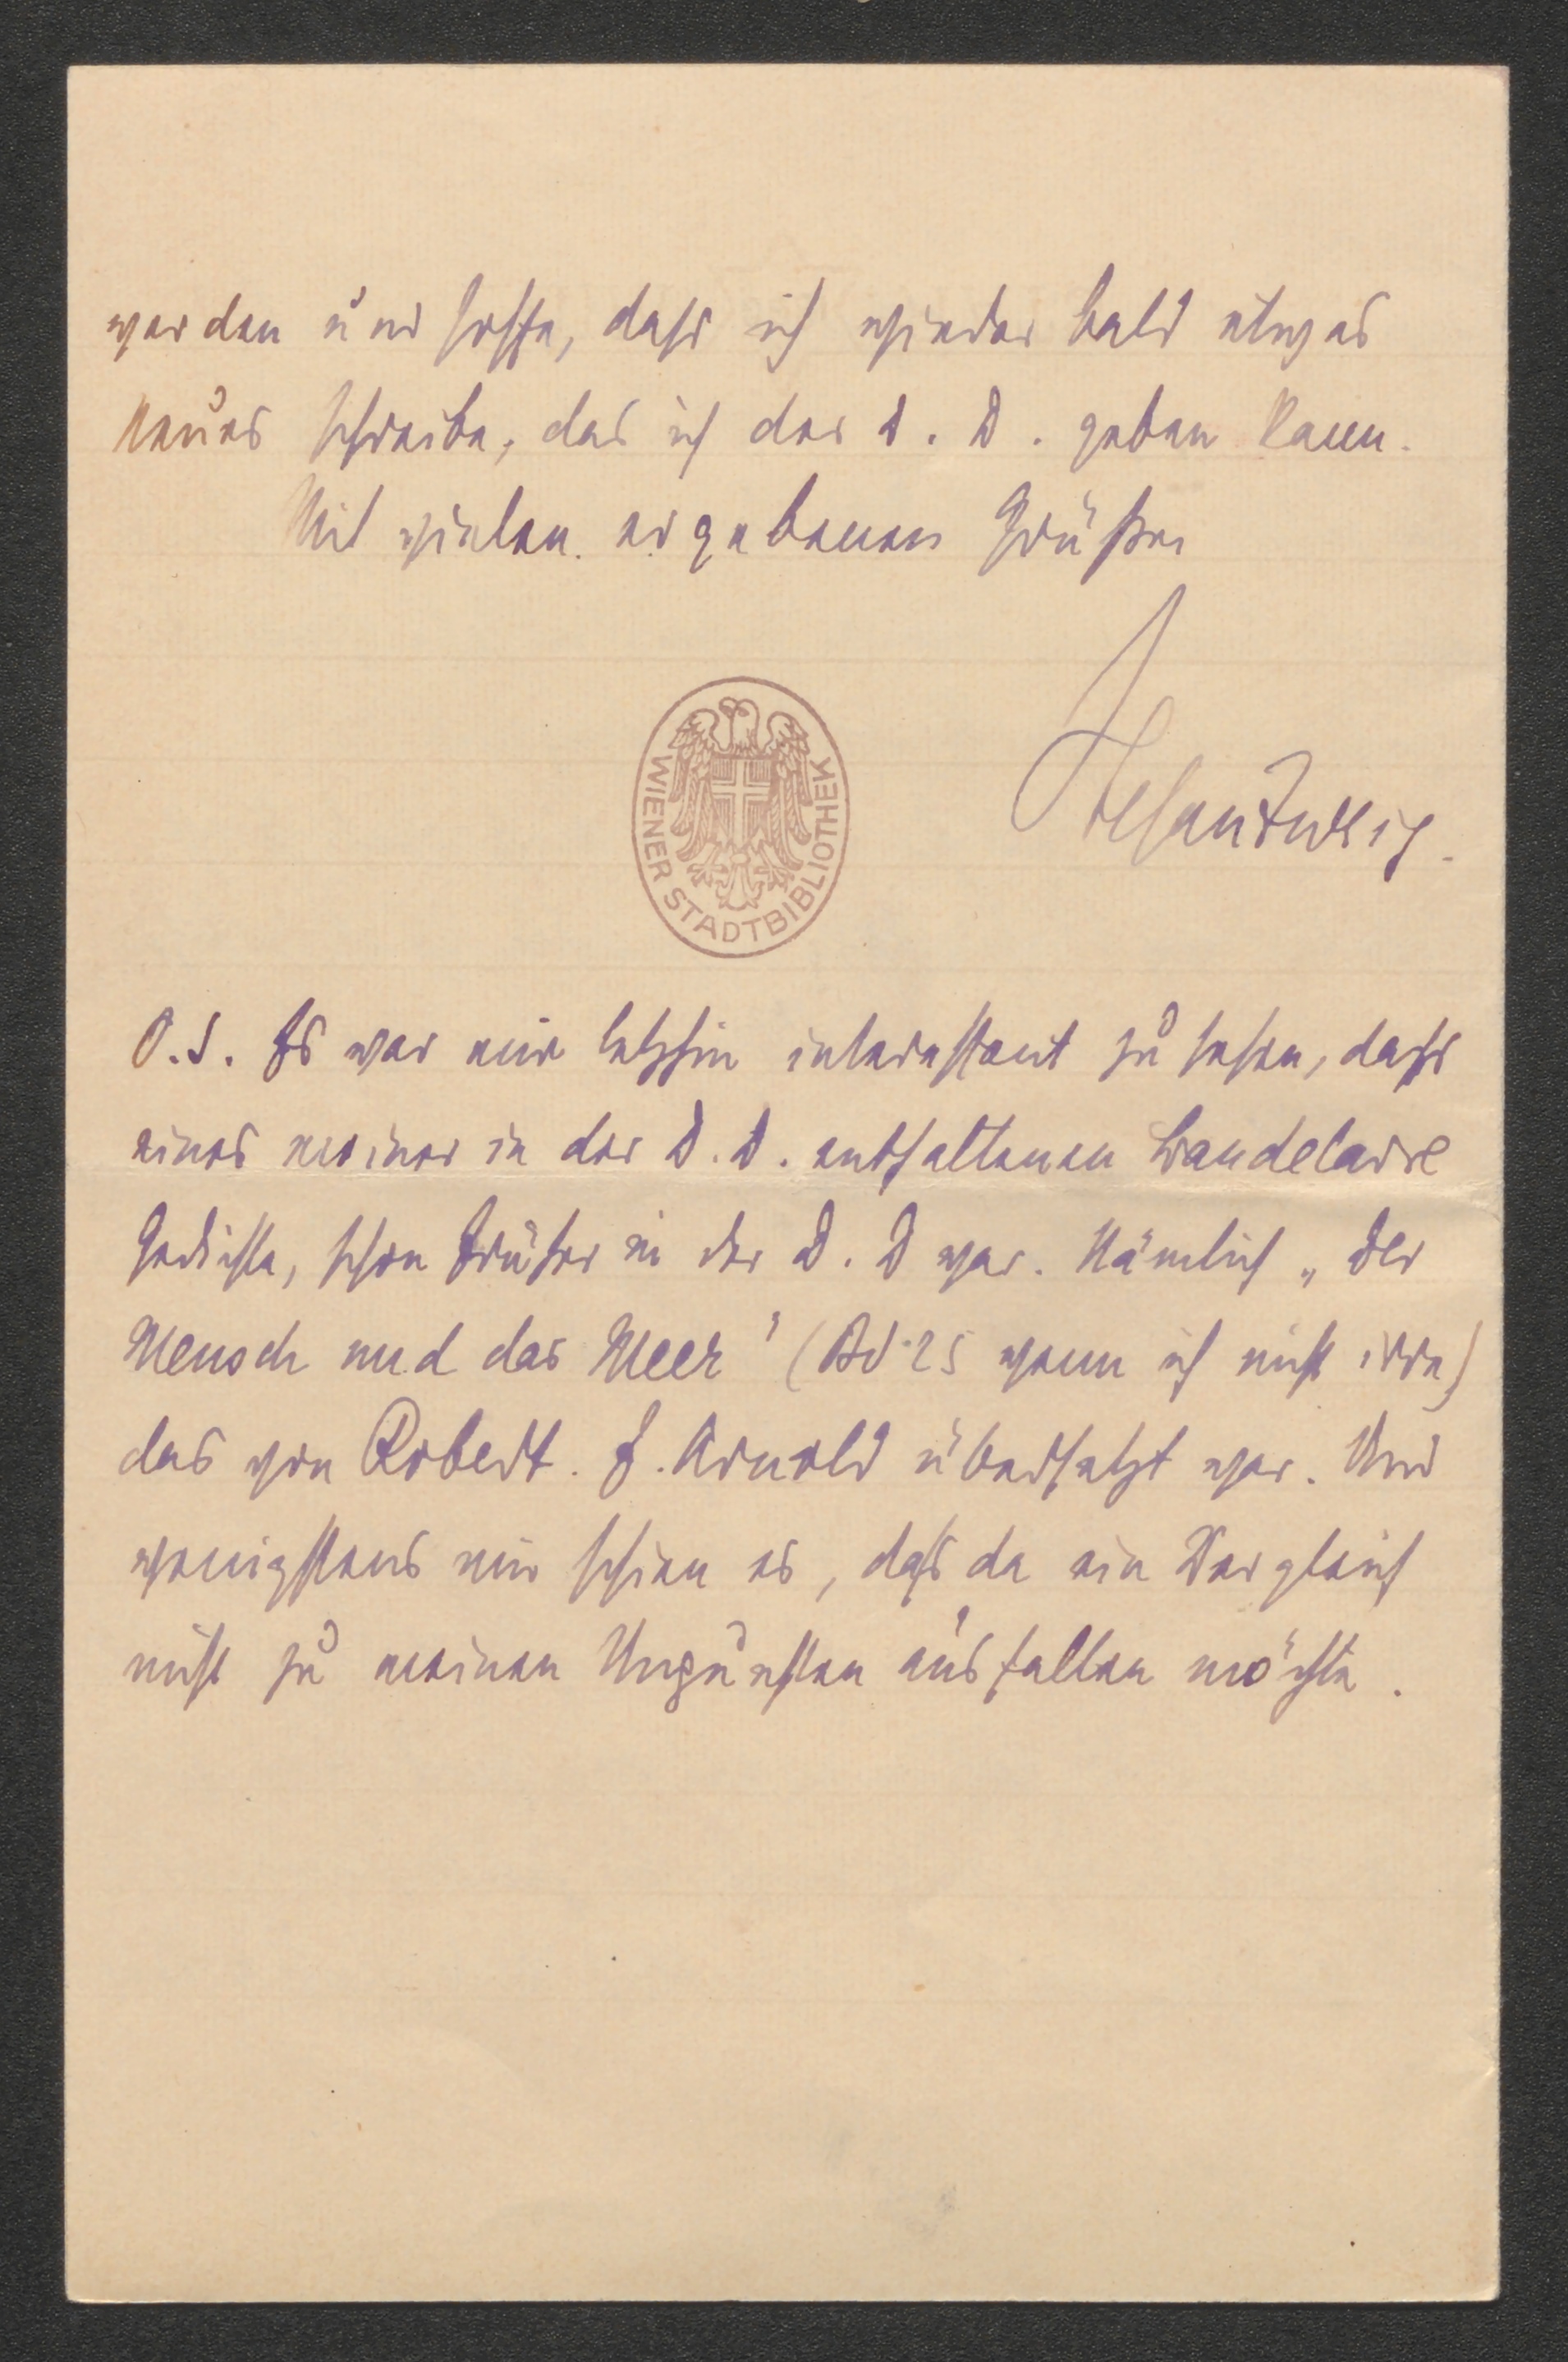 werden und hoffe, dass ich wieder bald etwas
Neues schreibe, das ich der D. D. geben kann.
Mit vielen ergebenen Grüßen
Stefan Zweig.
WIENER STADTBIBLIOTHEK
P.S. Es war mir letzhin interessant zu sehen, dass
eines meiner in der D. D. enthaltenen Baudelaire
Gedichte, schon früher in der D. D war. Nämlich „Der
Mensch und das Meer" (Bd 25 wenn ich nicht irre)
das von Robert. F. Arnold übersetzt war. Und
wenigstens mir schien es, dass da ein Vergleich
nicht zu meinen Ungunsten ausfallen möchte.